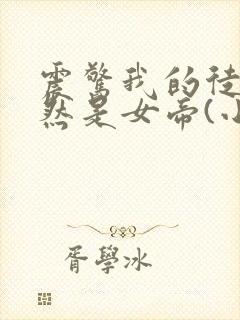 震驚我的徒
然是女帝(小
胥學冰